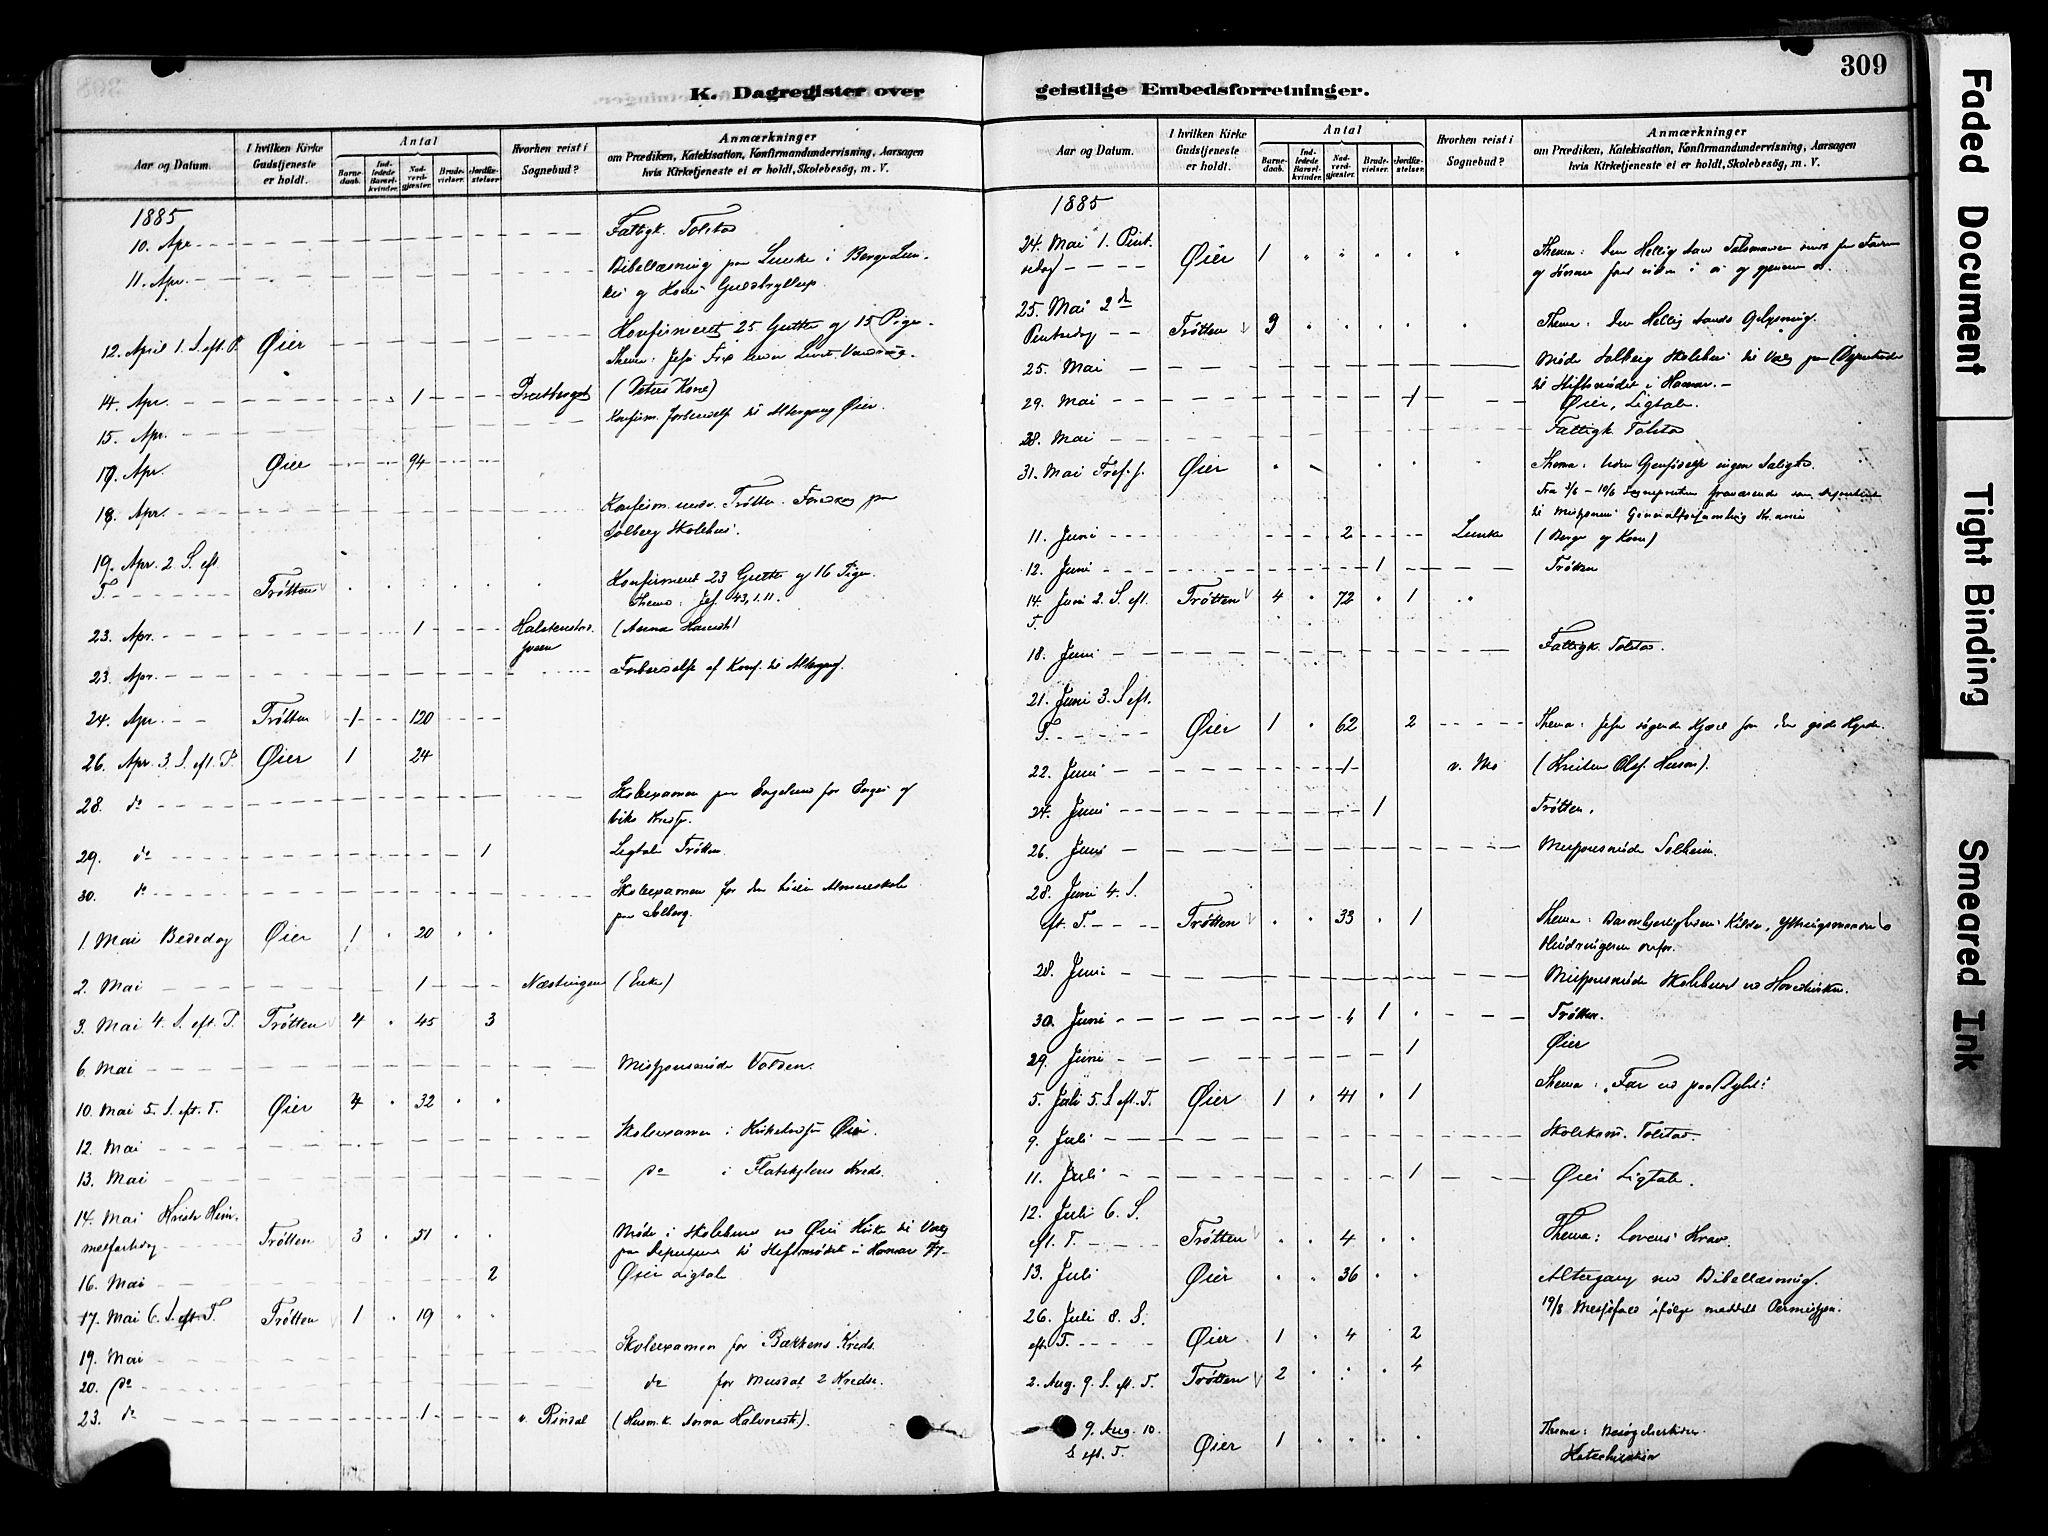 309
K. Dagregister over
geistlige Embedsforretninger.
Aar og Datum.
I hvilken Kirke Gudstjeneste er holdt.
Antal
Barne-daab.
Ind-ledede Barsel-kvinder.
Nad-verd-gjæster.
Brude-vielser.
Jordfæ-stelser.
Hvorhen reist i Sognebud?
Anmærkninger
om Prædiken, Katekisation, Konfirmandundervisning, Aarsagen
hvis Kirketjeneste ei er holdt, Skolebesøg, m. V.
1885
10. Apr. Fattigk. Tolstad
11. Apr. Bibellæsning paa Lunke i Berge Lun-
kes og Kones Guldbryllup.
12. April 1. S. eft. P. Øier Konfirmeret 25 Gutter og 15 Piger.
Thema: Jesu
14. Apr. 1 (Peters Kone)
15. Apr. Konfirm. Forberedelse til Altergang Øier.
Apr. Øier 94
18. Apr. Konfirm. underv. Trøtten. Foredrag paa
Solberg Skolehus.
19. Apr. 2. S. eft
P. Trøtten Konfirmeret 23 Gutter og 16 Piger.
Thema: Jes. 43, 1. 11.
23. Apr. 1 (Anna
23. Apr. Forberedelse af Konf. til Altergang.
24. Apr. Trøtten 1 120
26. Apr. 3. S. eft. P. Øier 1 24
28. do Skoleexamen paa for
Kreds.
29. do 1 Ligtale Trøtten.
30. do Skoleexamen for den høiere Almueskole
paa Solberg.
1. Mai Bededag Øier 1 20
2. Mai 1 Næstingen (Enke)
3. Mai 4. S. eft. P. Trøtten 4 45 3
6. Mai Missionsmøde Volden.
10. Mai 5. S. eft. P. Øier 4 32
12. Mai Skoleexamen i Øier.
13. Mai do i Flatskylens Kreds.
14. Mai Kristi Him-
melfartsdag Trøtten 3 31 Møde i Skolehuset ved Øier Kirke til Valg
paa til Stiftsmødet i Hamar
16. Mai 2 Øier Ligtale
17. Mai 6. S. eft. P. Trøtten 1 19
19. Mai Skoleexamen for Bækkens Kreds.
20. do do for Musdal 2 Kredse.
23. do 1 v. Rindal (Husm.k. Anna Halvorsdt.).
Aar og Datum.
I hvilken Kirke Gudstjeneste er holdt.
Antal
Barne-daab.
Ind-ledede Barsel-kvinder.
Nad-verd-gjæster.
Brude-vielser.
Jordfæ-stelser.
Hvorhen reist i Sognebud?
Anmærkninger
om Prædiken, Katekisation, Konfirmandundervisning, Aarsagen
hvis Kirketjeneste ei er holdt, Skolebesøg, m. V.
1885
24. Mai 1. Pint-
sedag Øier 1 Thema: Den Hellig Aand
25. Mai 2den
Pintsedag Trøtten 3 Thema: Den Hellig Aands Oplysning.
25. Mai Møde Solberg Skolehus til Valg paa
til Stiftsmødet i Hamar.
29. Mai 1 Øier, Ligtale.
28. Mai Fattigk. Tolstad
31. Mai Tref. f. Øier Thema: Uden Gjenfødelse ingen Salighed.
Fra 3/6 – 10/6 Sognepresten fraværende som
til Generalforsamling
11. Juni 2 Lunke (Berge og Kone)
12. Juni 1 Trøtten
14. Juni 2. S. eft.
T. Trøtten 4 72 1
18. Juni Fattigk. Tolstad.
21. Juni 3. S. eft.
T. Øier 1 62 2 Thema: Jesu søgende Kjærl. fra den gode Hyrde.
22. Juni 1 v. Mo
24. Juni 1 Trøtten.
26. Juni Missionsmøde Solheim.
28. Juni 4. S.
eft. T. Trøtten 33 1 Thema: Barmhjertighedens Kilder,
Hindringerne derfor.
28. Juni Missionsmøde Skolehuset ved Hovedkirken.
30. Juni 1 Trøtten.
29. Juni 1 Øier
5. Juli 5. S. eft. T. Øier 1 41 1 Thema: „Far ud paa Dybet“
9. Juli Skolekom. Tolstad.
11. Juli 1 Øier Ligtale.
12. Juli 6. S.
eft. T. Trøtten 4 Thema: Lovens Krav.
13. Juli Øier 36 Altergang med Bibellæsning.
19/8 Messefald ifølge meddelt Permission.
26. Juli 8. S.
eft. T. Øier 1 4 2
2. Aug. 9. S. eft. T. Trøtten 2 4
9. Aug. 10.
S. eft. T. Øier 1 Thema: Besøgelsestiden.
Katechisation
Faded Document
Tight Binding
Smeared Ink